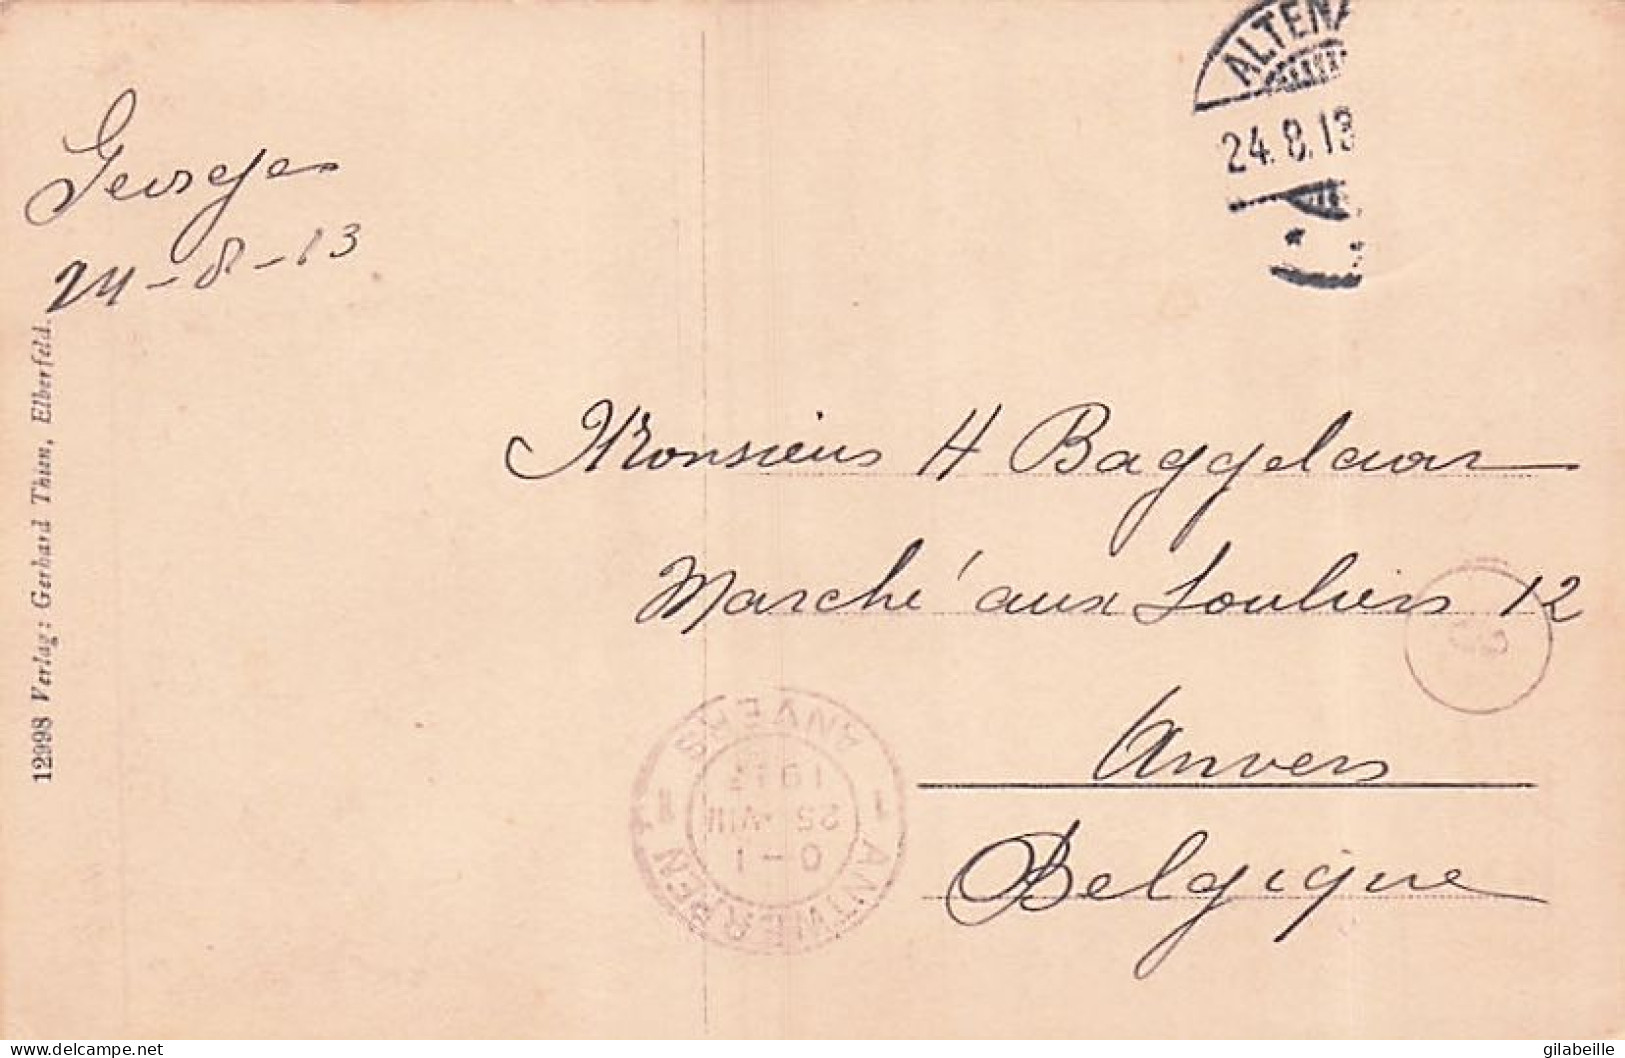 ALTENA
24.8.13
Georges
24-8-13
12998 Verlag: Gerhard Thien, Elberfeld.
Monsieur H Baggelaar
Marché aux Souliers 12
Anvers
Belgique
ANTWERPEN 1
0-1
25 VIII
1913
1 ANVERS
delcampe.net
gilabeille